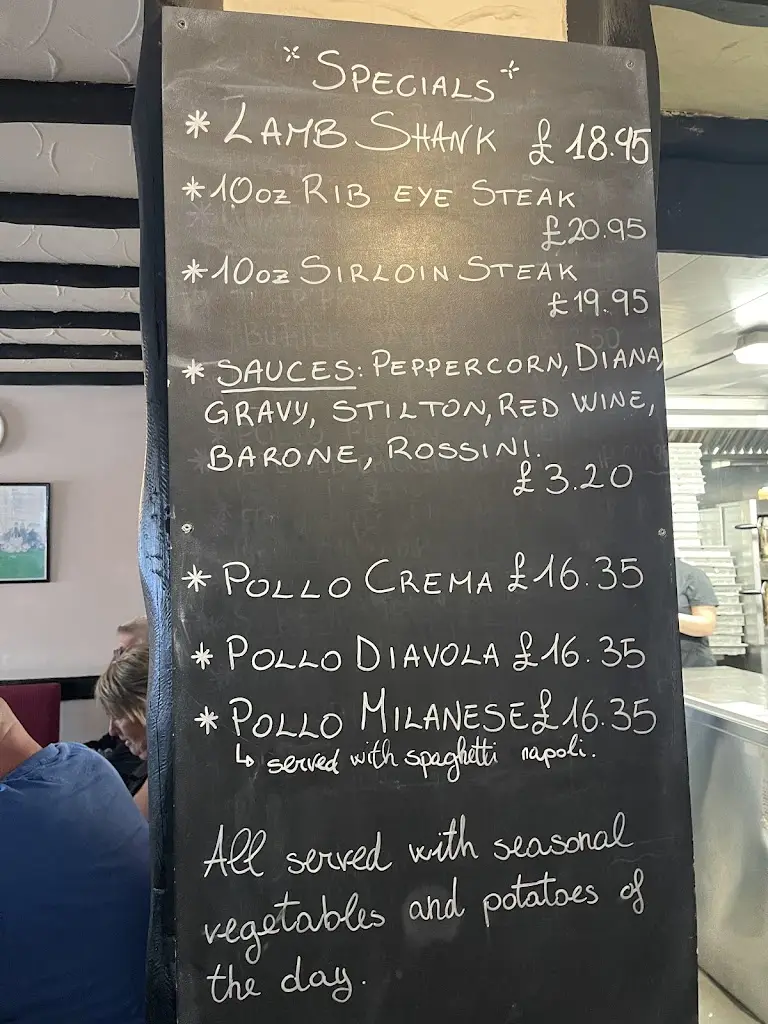 * SPECIALS *
* LAMB SHANK £18.95
* 10oz RIB EYE STEAK
£20.95
* 10oz SIRLOIN STEAK
£19.95
* SAUCES: PEPPERCORN, DIANA,
GRAVY, STILTON, RED WINE,
BARONE, ROSSINI.
£3.20
* POLLO CREMA £16.35
* POLLO DIAVOLA £16.35
* POLLO MILANESE £16.35
↳ served with spaghetti napoli.
All served with seasonal
vegetables and potatoes of
the day.